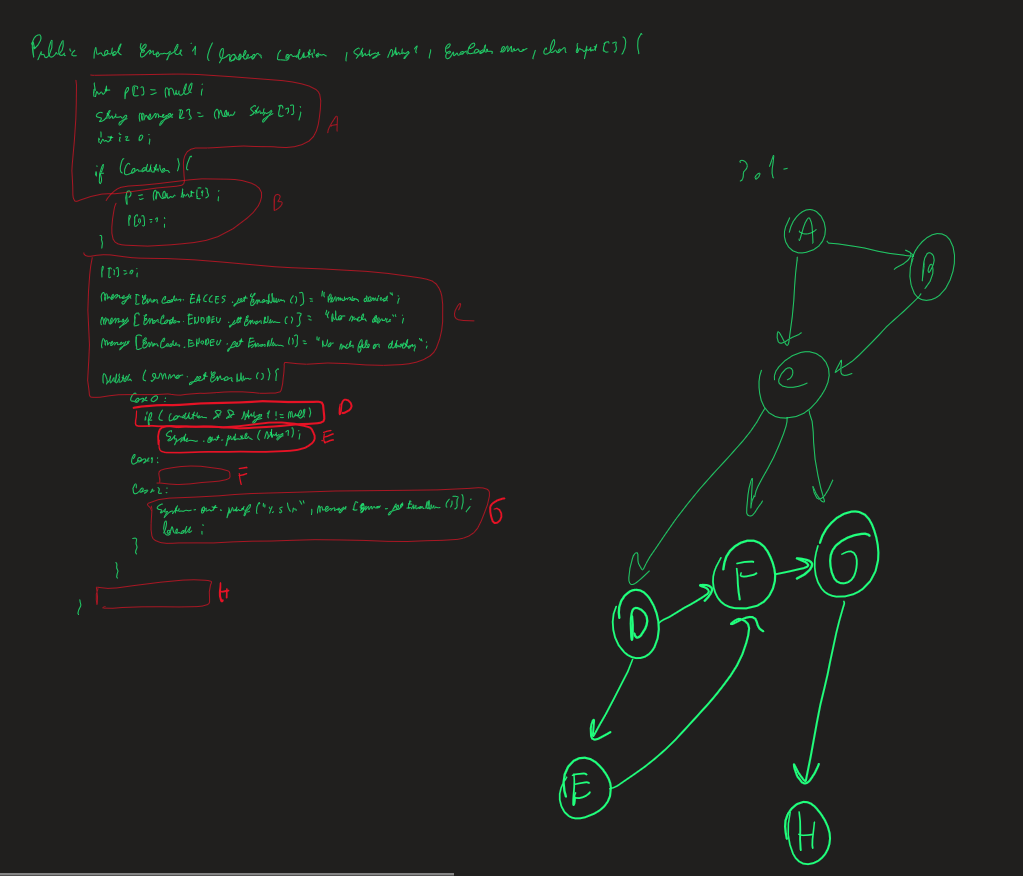 Public void Example1 (boolean condition, String string1, ErrorCodes errno, char input[]) {
int p[] = null;
String message[] = new String[];
int i = 0;
A
if (condition) {
p = new int[1];
p[0] = ;
B
}
p[1] = 0;
message [ErrorCodes.EACCES.getErrorNum()] = "Permission denied";
message [ErrorCodes.ENODEV.getErrorNum()] = "No such device";
C
message [ErrorCodes.ENODEV.getErrorNum()] = "No such file or directory";
switch (errno.getErrorNum()) {
case 0:
if (condition && string1 != null)
D
System.out.println(string1);
E
case 1:
F
case 2:
System.out.printf("%s\n", message[errno.getErrorNum()]);
G
break;
}
}
H
}
3.1-
A
B
C
D
F
G
E
H